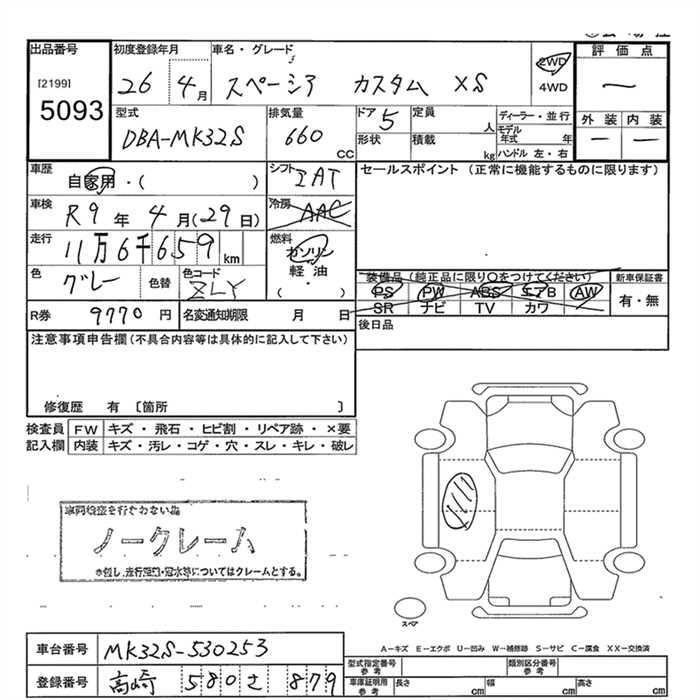 出品番号 初度登録年月 車名・グレード 評価点
[2199] 26 4月 スペーシア カスタム XS 2WD 4WD
5093
型式 排気量 ドア 5 定員 人 ディーラー・並行 外装 内装
DBA-MK32S 660 CC 形状 積載 kg モデル年式 年 ハンドル 左・右
車歴 自家用・( ) シフト IAT セールスポイント (正常に機能するものに限ります)
車検 R9年4月(29日) 冷房 AAC
走行 11万6千659km 燃料 ガソリン 軽油 ・ ( )
色 グレー 色替 色コード ZLY
装備品 (純正品に限り○をつけてください) 新車保証書
PS PW ABS エアB AW 有・無
SR ナビ TV カワ
R券 9770円 名変通知期限 月 日 後日品
注意事項申告欄 (不具合内容等は具体的に記入して下さい)
修復歴 有 〔箇所 〕
検査員 FW キズ・飛石・ヒビ割・リペア跡・×要
記入欄 内装 キズ・汚レ・コゲ・穴・スレ・キレ・破レ
車両検査を行わない為
ノークレーム
※但し、走行距離・冠水等についてはクレームとする。
スペア
A―キズ E―エクボ U―凹み W―補修跡 S―サビ C―腐食 XX―交換済
車台番号 MK32S-530253 型式指定番号 参考 類別区分番号 参考
登録番号 高崎 580 さ 879 車庫証明用 参考 長さ cm 幅 cm 高さ cm